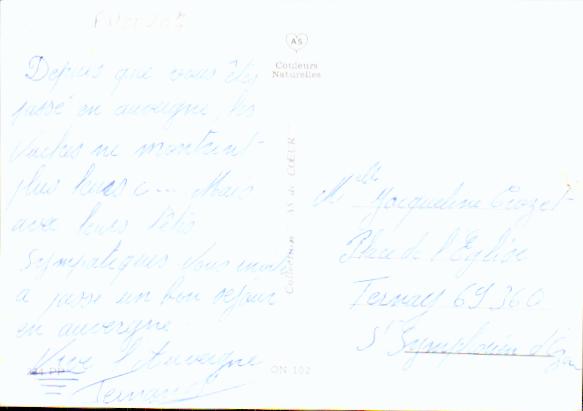 AS
Couleurs
Naturelles
Depuis que vous êtes
passé en auvergne, les
Vaches ne montrent
plus leurs c... Mais
avec leurs têtes
sympatiques vous invite
a passe un bon séjour
en auvergne.
Vive l'Auvergne
Collection AS de CŒUR
ON 102
Mlle Jacqueline Crozet
Place de l'Eglise
Ternay 69360
St Symphorien d'Ozon